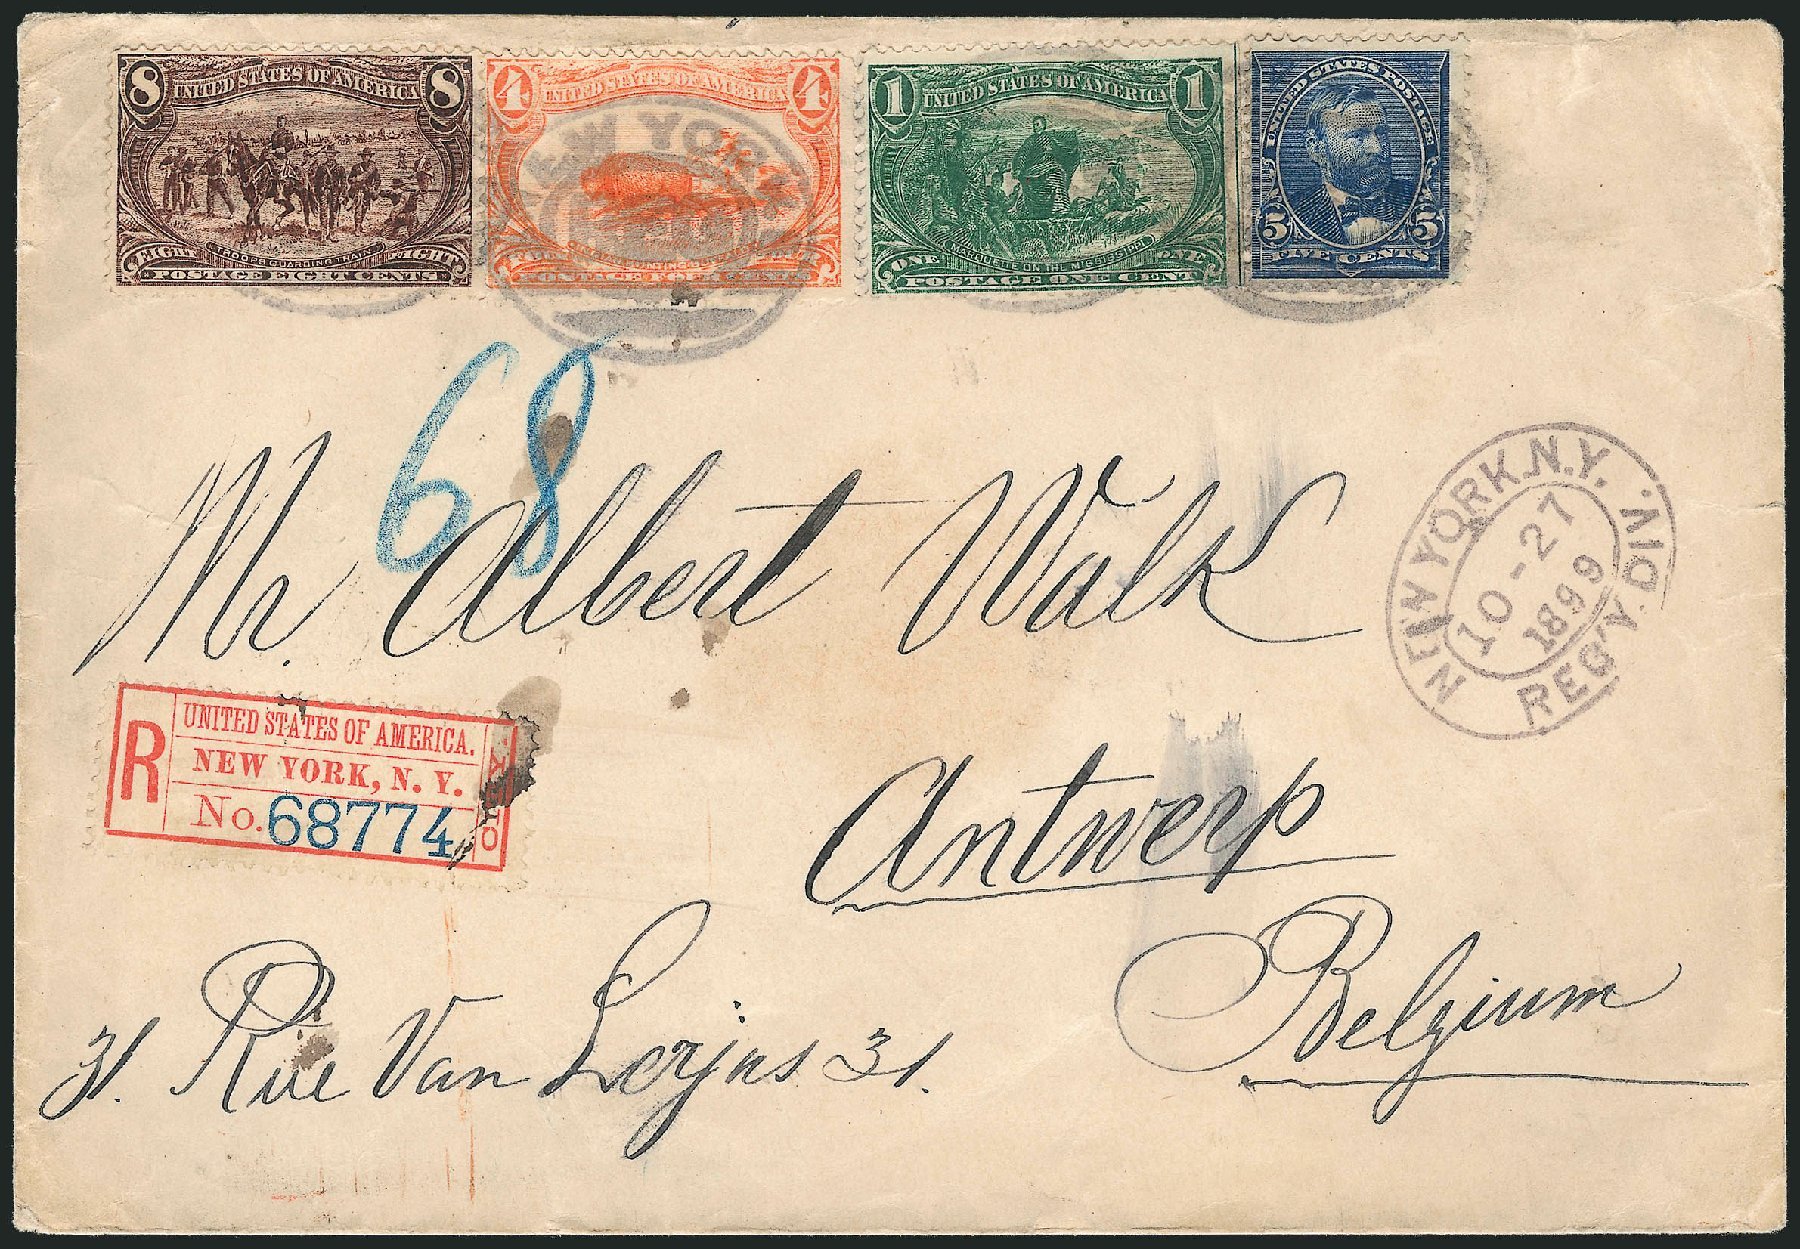 8 UNITED STATES OF AMERICA 8
EIGHT TROOPS GUARDING TRAIN EIGHT
POSTAGE EIGHT CENTS
4 UNITED STATES OF AMERICA 4
POSTAGE FOUR CENTS
NEW YORK
1 UNITED STATES OF AMERICA 1
MARQUETTE ON THE MISSISSIPPI
ONE ONE
POSTAGE ONE CENT
UNITED STATES POSTAGE
5 5
FIVE CENTS
68
NEW YORK, N.Y.
10-27
1899
REG'Y. DIV.
Mr. Albert Walk
R
UNITED STATES OF AMERICA.
NEW YORK, N. Y.
No. 68774
Antwerp
Belgium
31. Rue Van Lerjus 31.